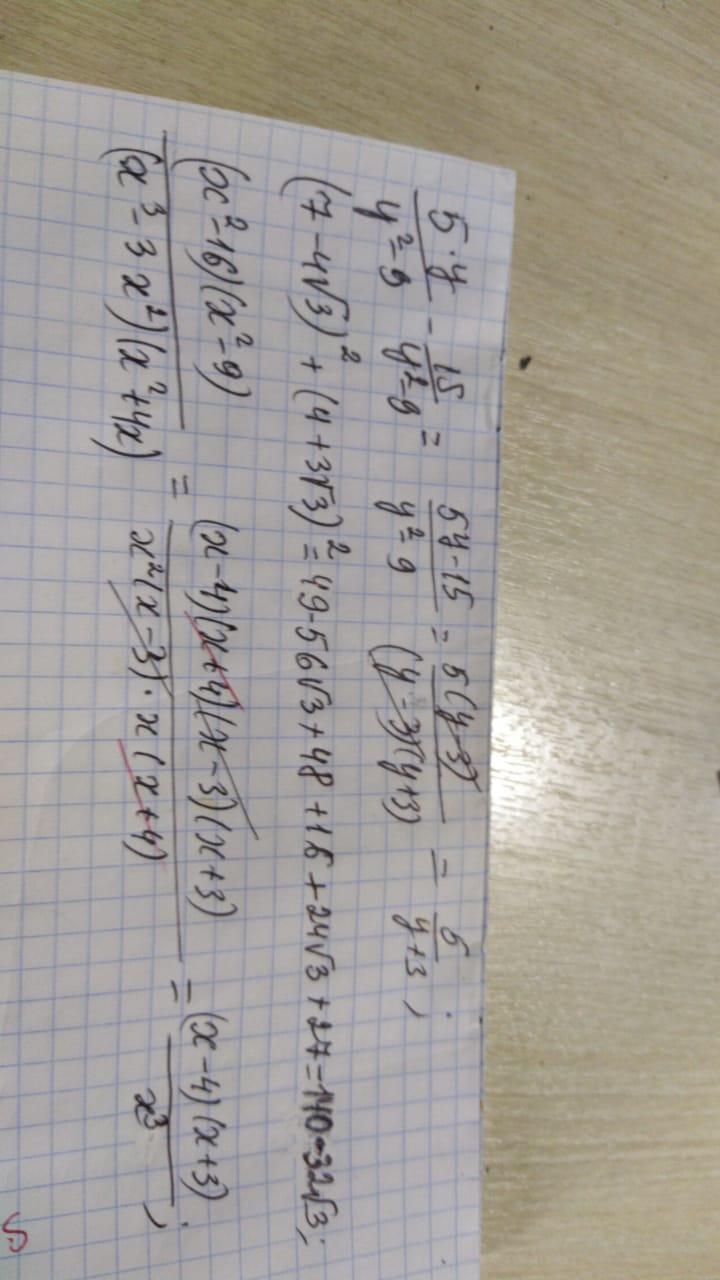 5·y/y²-9 - 15/y²-9 = 5y-15/y²-9 = 5(y-3)/(y-3)(y+3) = 5/y+3 ;
(7-4√3)² + (4+3√3)² = 49-56√3+48+16+24√3+27=140-32√3;
(x²-16)(x²-9)/(x³-3x²)(x²+4x) = (x-4)(x+4)(x-3)(x+3)/x²(x-3)·x(x+4) = (x-4)(x+3)/x³ ;